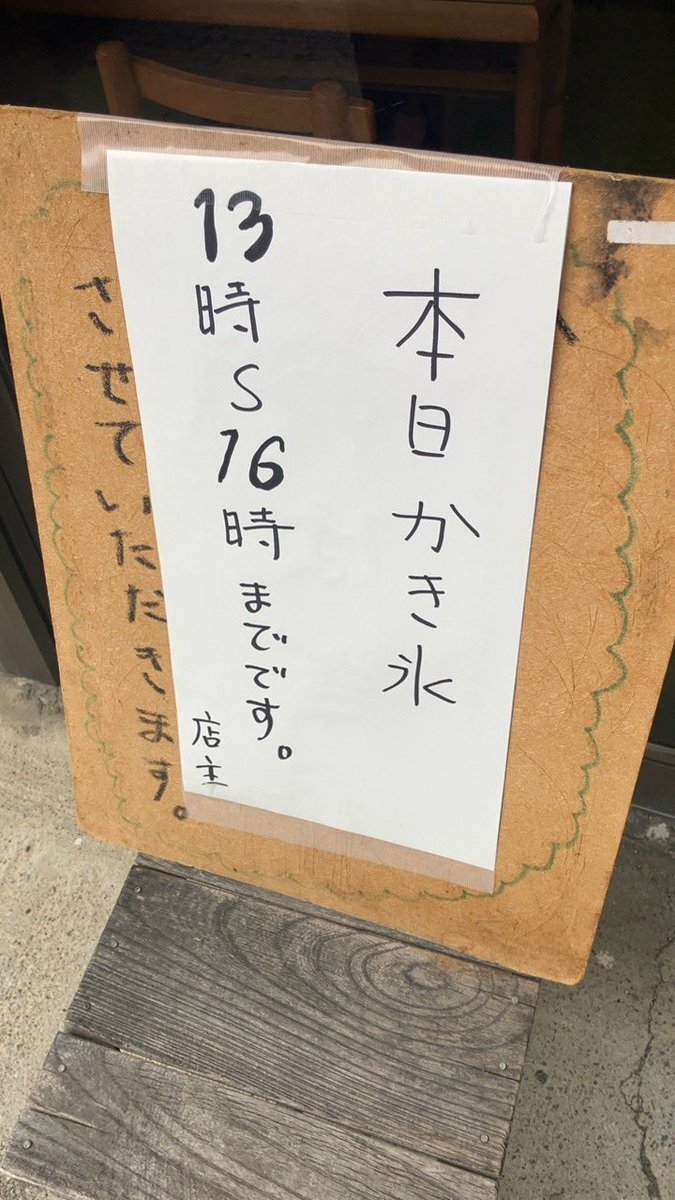 本日かき氷
13時〜16時までです。
店主
させていただきます。